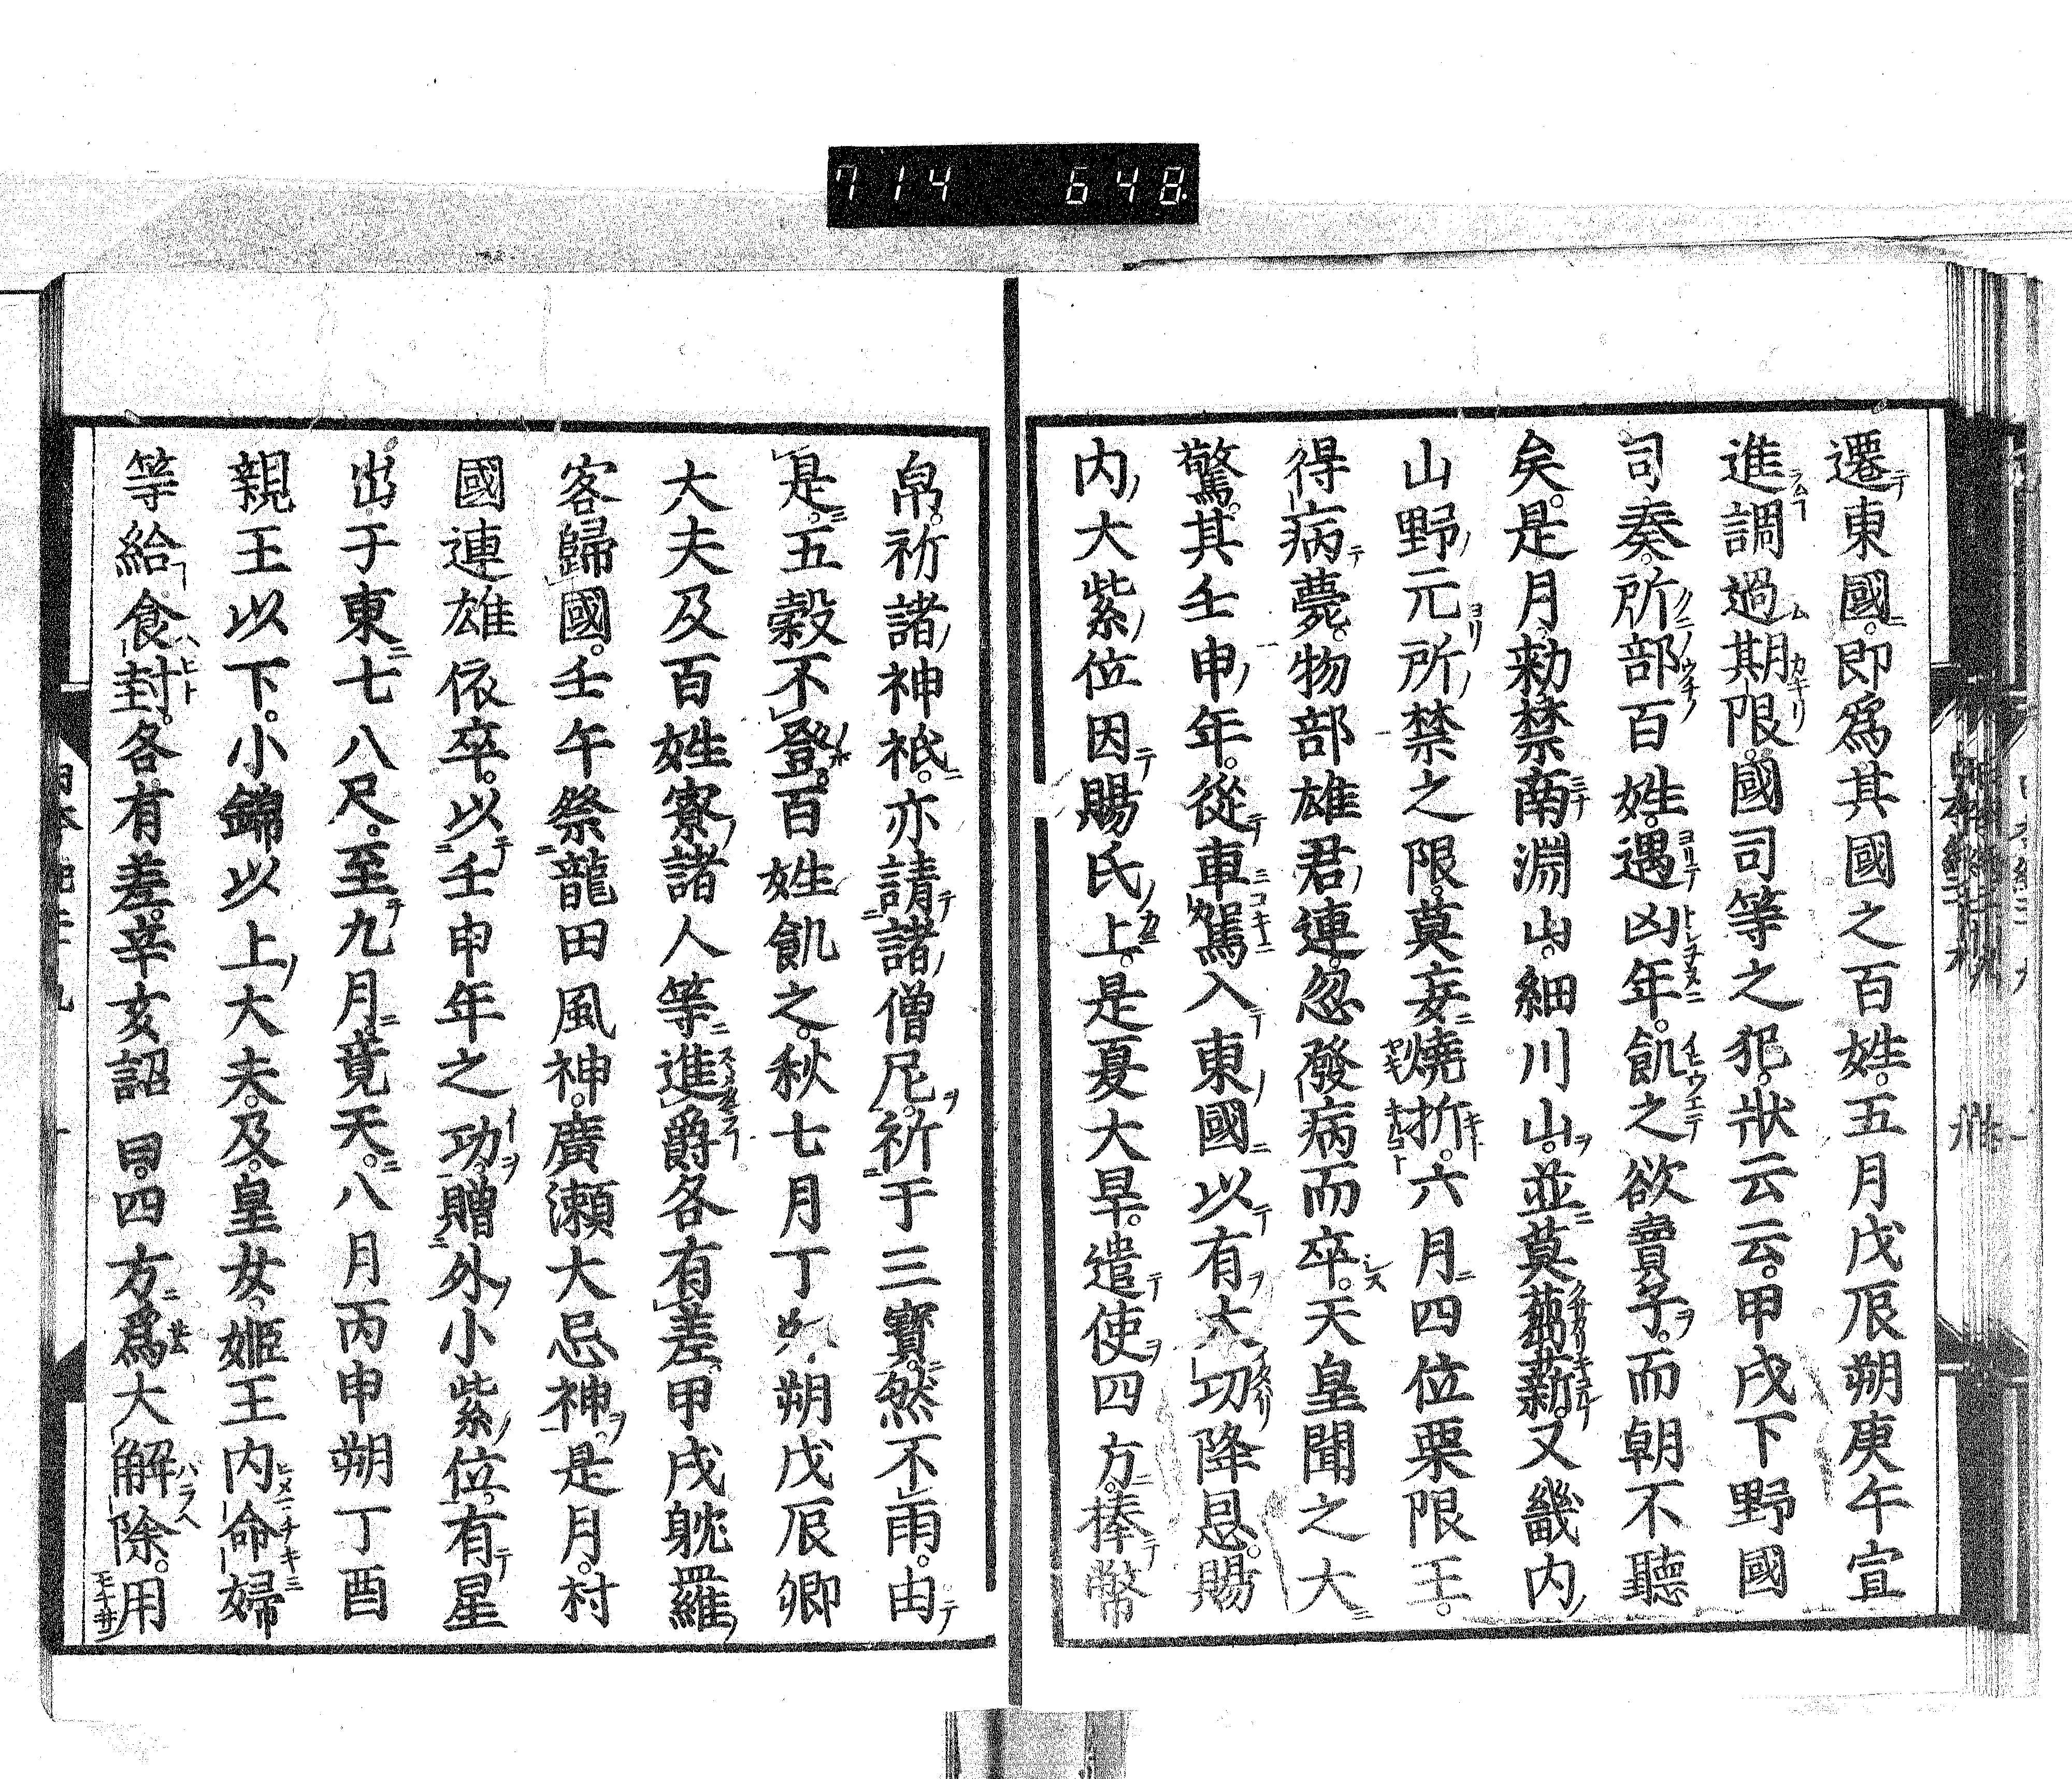 714 648
遷東國即爲其國之百姓五月戊辰朔庚午宣
進調過期限國司等之犯狀云云甲戌下野國
司奏所部百姓遇凶年飢之欲賣子而朝不聽
矣是月勅禁南淵山細川山並莫蒭薪又畿内
山野元所禁之限莫妄燒折六月四位栗隈王
得病薨物部雄君連忽發病而卒天皇聞之大
驚其壬申年從車駕入東國以有大功降恩賜
内大紫位因賜氏上是夏大旱遣使四方捧幣
帛祈諸神祇亦請諸僧尼祈于三寶然不雨由
是五穀不登百姓飢之秋七月丁卯朔戊辰卿
大夫及百姓寮諸人等進爵各有差甲戌躭羅
客歸國壬午祭龍田風神廣瀬大忌神是月村
國連雄依卒以壬申年之功贈外小紫位有星
出于東七八尺至九月竟天八月丙申朔丁酉
親王以下小錦以上大夫及皇女姫王内命婦
等給食封各有差辛亥詔曰四方爲大解除用